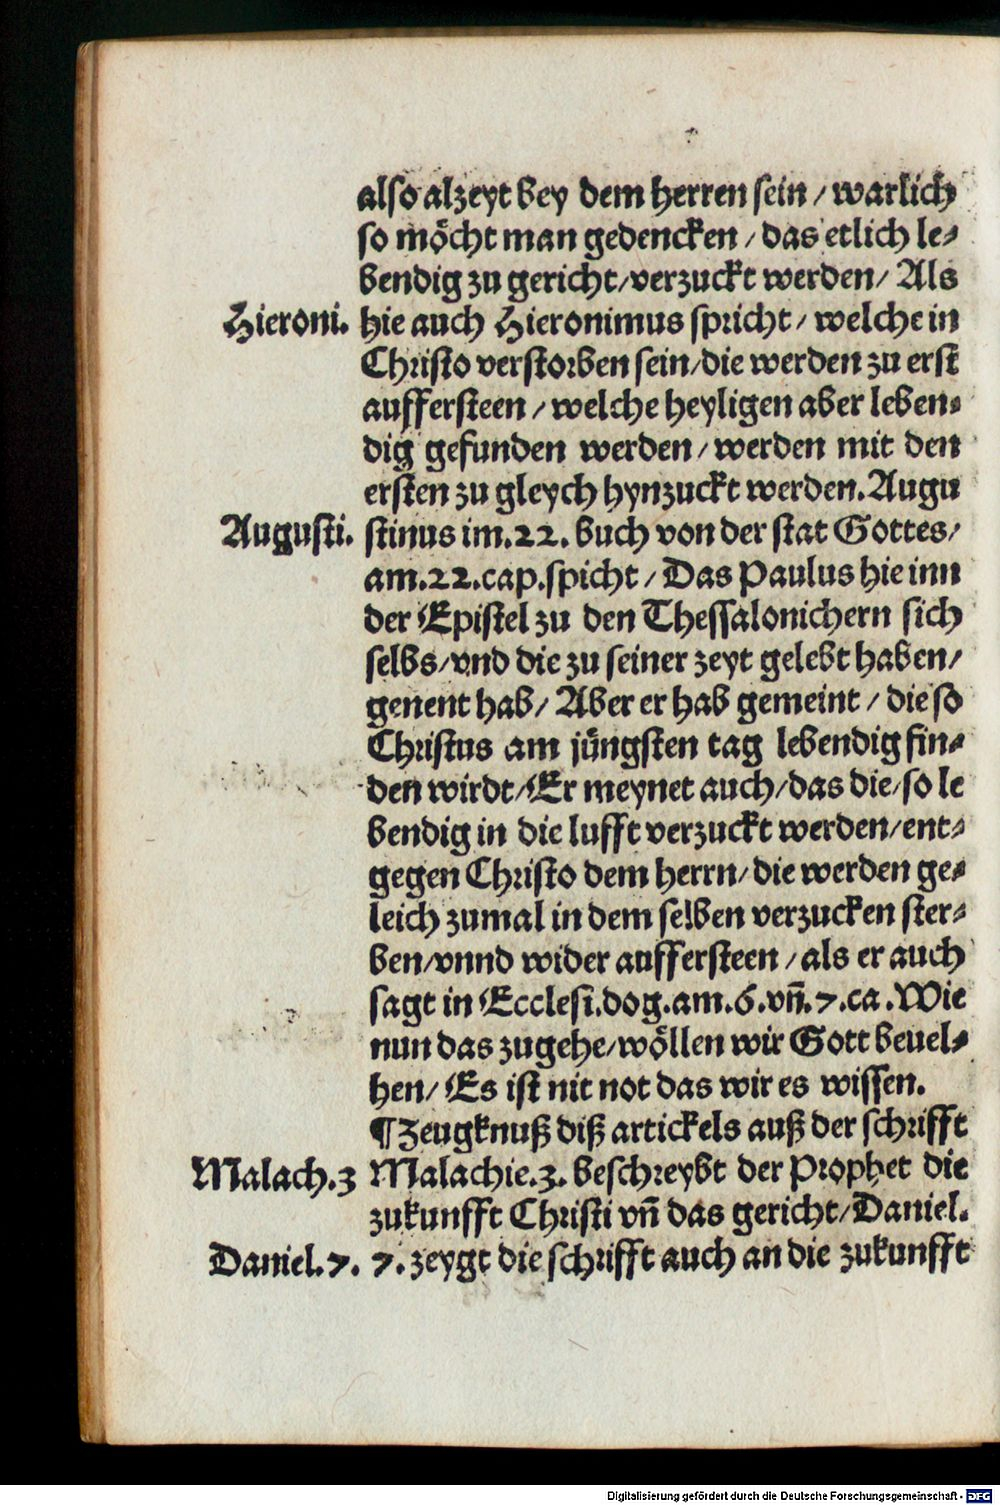 also alzeyt bey dem herren sein / warlich
so möcht man gedencken / das etlich le⸗
bendig zu gericht / verzuckt werden / Als
Hieroni. hie auch Hieronimus spricht / welche in
Christo verstorben sein / die werden zu erst
auffersteen / welche heyligen aber leben⸗
dig gefunden werden / werden mit den
ersten zu gleych hynzuckt werden. Augu
Augusti. stinus im .22. buch von der stat Gottes /
am .22. cap. spicht / Das Paulus hie inn
der Epistel zu den Thessalonichern sich
selbs / vnd die zu seiner zeyt gelebt haben /
genent hab / Aber er hab gemeint / die so
Christus am jüngsten tag lebendig fin⸗
den wirdt / Er meynet auch / das die / so le
bendig in die lufft verzuckt werden / ent⸗
gegen Christo dem herrn / die werden ge⸗
leich zumal in dem selben verzucken ster⸗
ben / vnnd wider auffersteen / als er auch
sagt in Ecclesi. dog. am .6. vñ .7. ca. Wie
nun das zugehe / wöllen wir Gott beuel⸗
hen / Es ist nit not das wir es wissen.
¶ Zeugknuß diß artickels auß der schrifft
Malach. 3 Malachie .3. beschreybt der Prophet die
zukunfft Christi vñ das gericht / Daniel.
Daniel. 7. 7. zeygt die schrifft auch an die zukunfft
Digitalisierung gefördert durch die Deutsche Forschungsgemeinschaft - DFG